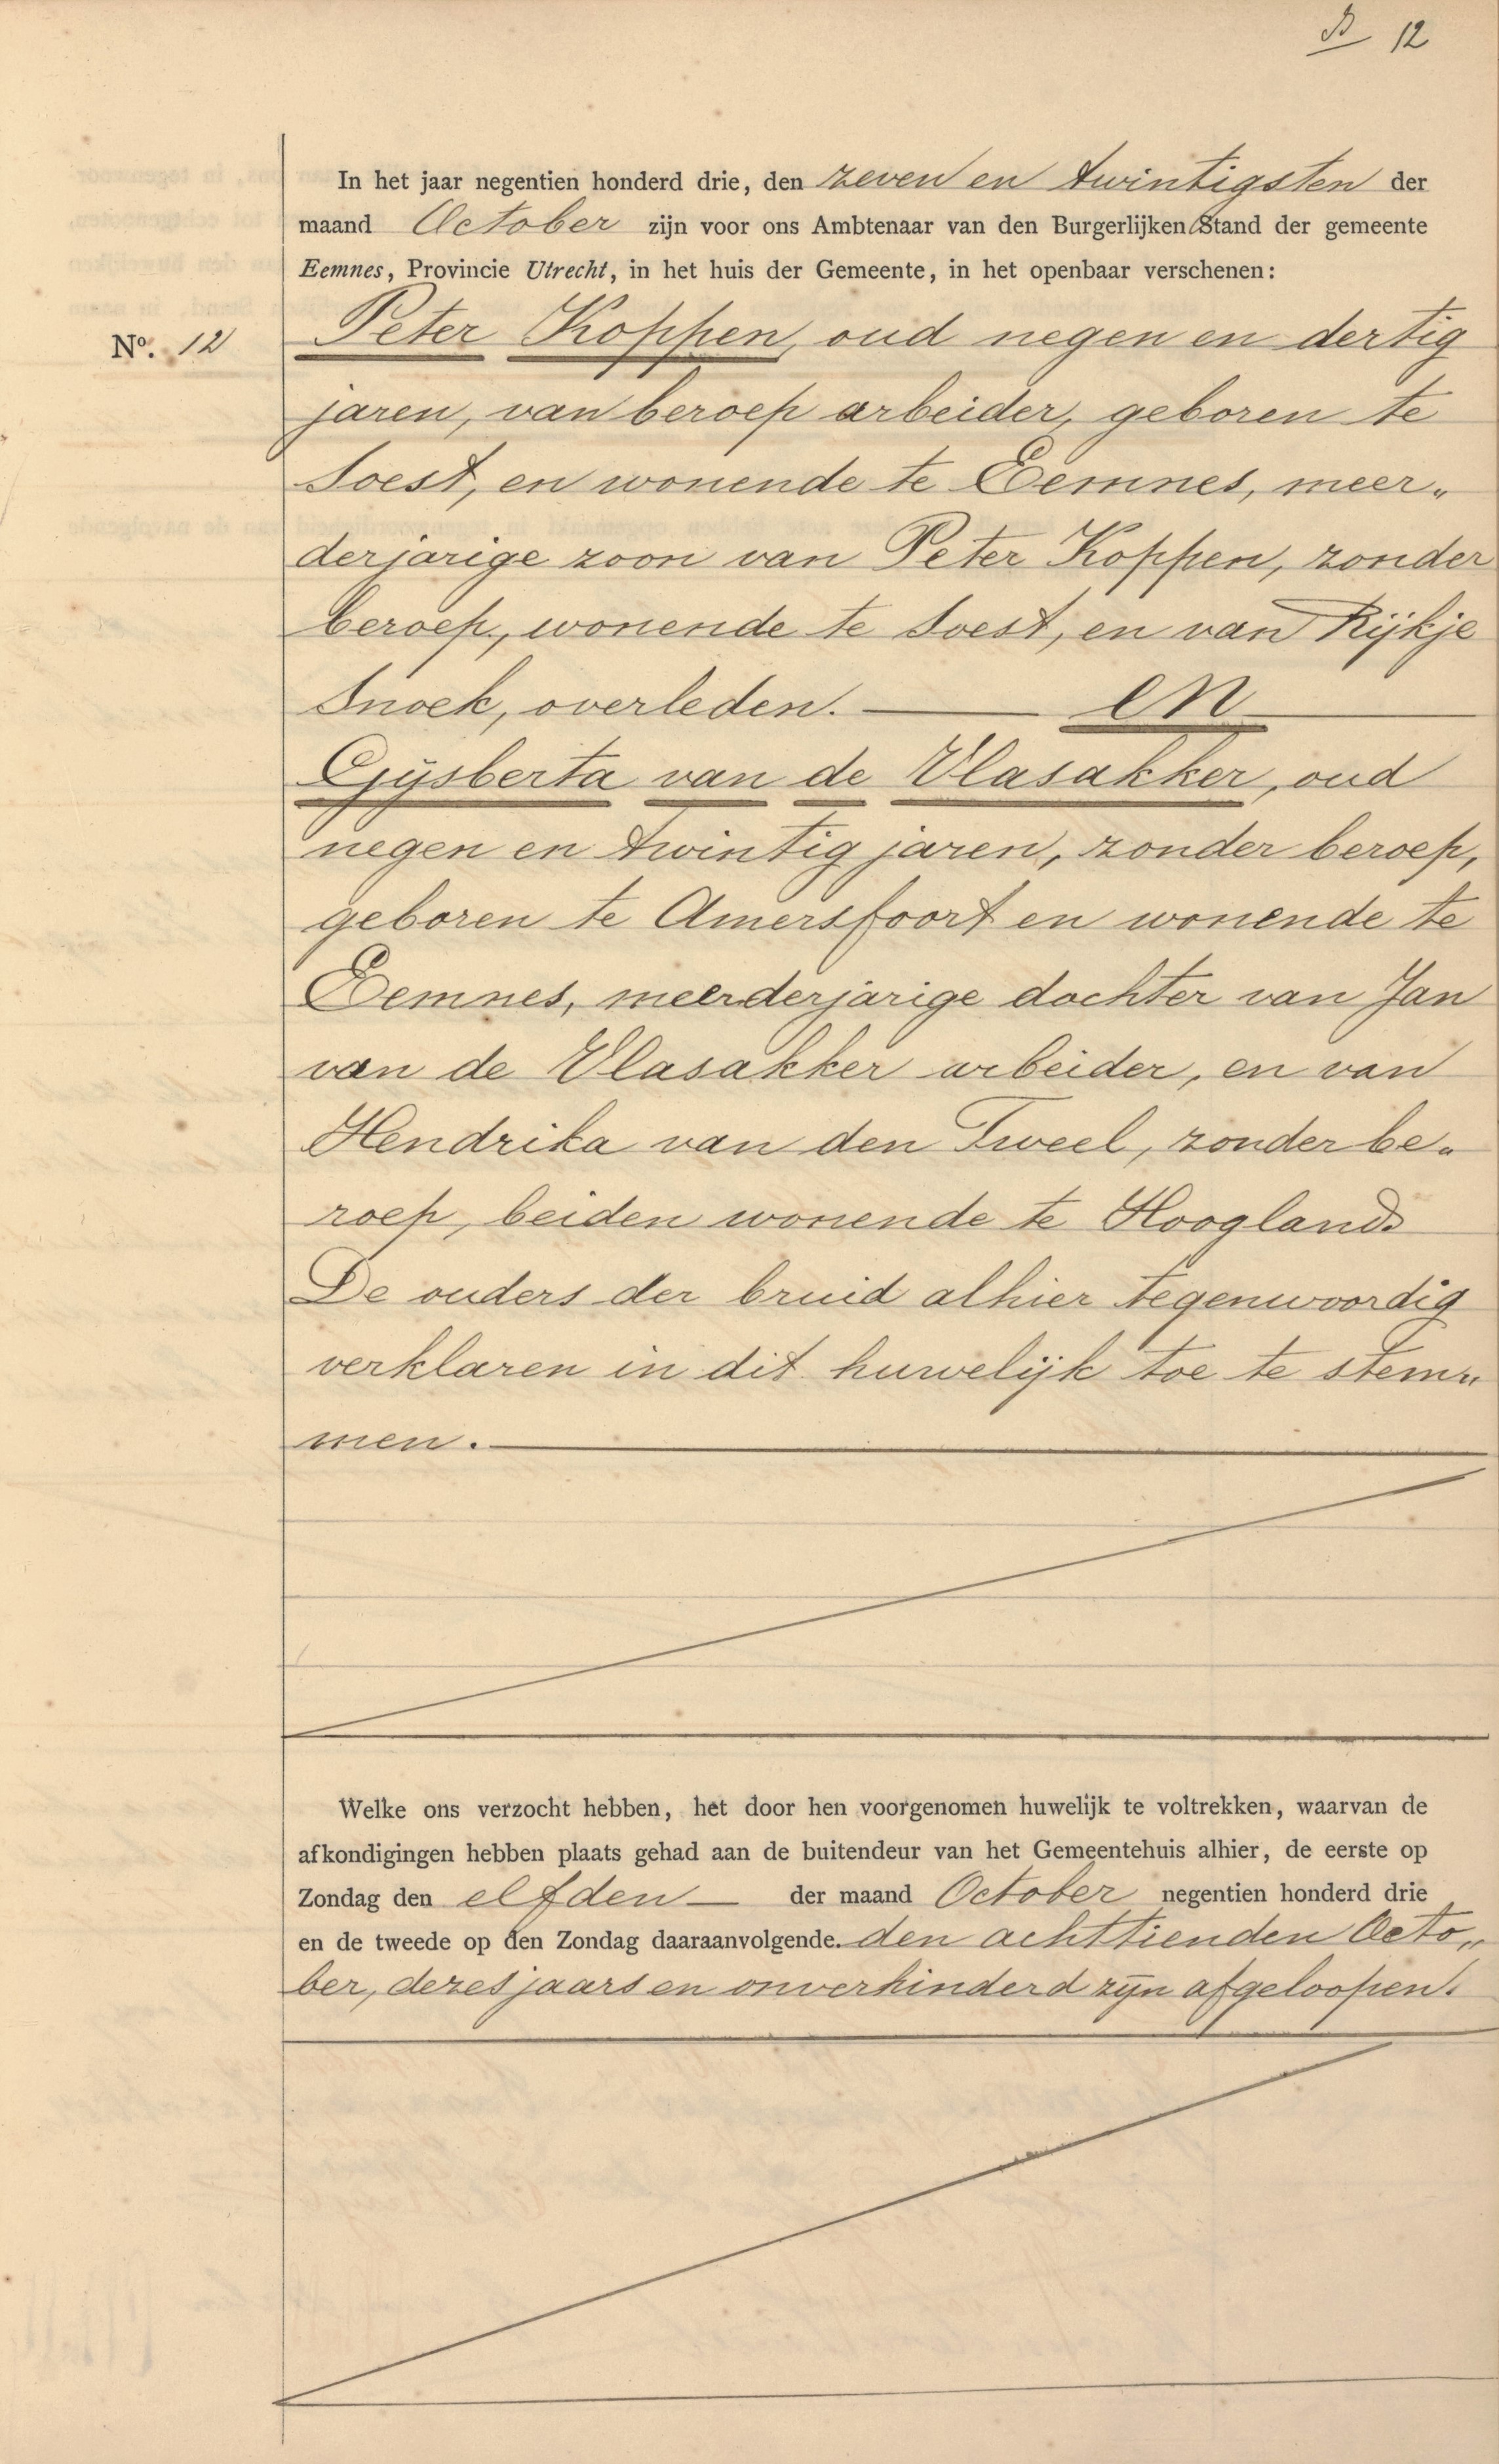 B 12
In het jaar negentien honderd drie, den zeven en twintigsten der
maand October zijn voor ons Ambtenaar van den Burgerlijken Stand der gemeente
Eemnes, Provincie Utrecht, in het huis der Gemeente, in het openbaar verschenen:
No. 12
Peter Koppen, oud negen en dertig
jaren, van beroep arbeider, geboren te
Soest, en wonende te Eemnes, meer„
derjarige zoon van Peter Koppen, zonder
beroep, wonende te Soest, en van Rijkje
Snoek, overleden. — en
Gijsberta van de Vlasakker, oud
negen en twintig jaren, zonder beroep,
geboren te Amersfoort en wonende te
Eemnes, meerderjarige dochter van Jan
van de Vlasakker arbeider, en van
Hendrika van den Tweel, zonder be„
roep, beiden wonende te Hoogland.
De ouders der bruid alhier tegenwoordig
verklaren in dit huwelijk toe te stem„
men. —
Welke ons verzocht hebben, het door hen voorgenomen huwelijk te voltrekken, waarvan de
afkondigingen hebben plaats gehad aan de buitendeur van het Gemeentehuis alhier, de eerste op
Zondag den elfden — der maand October negentien honderd drie
en de tweede op den Zondag daaraanvolgende. den achttienden Octo„
ber, dezes jaars en onverhinderd zijn afgeloopen.